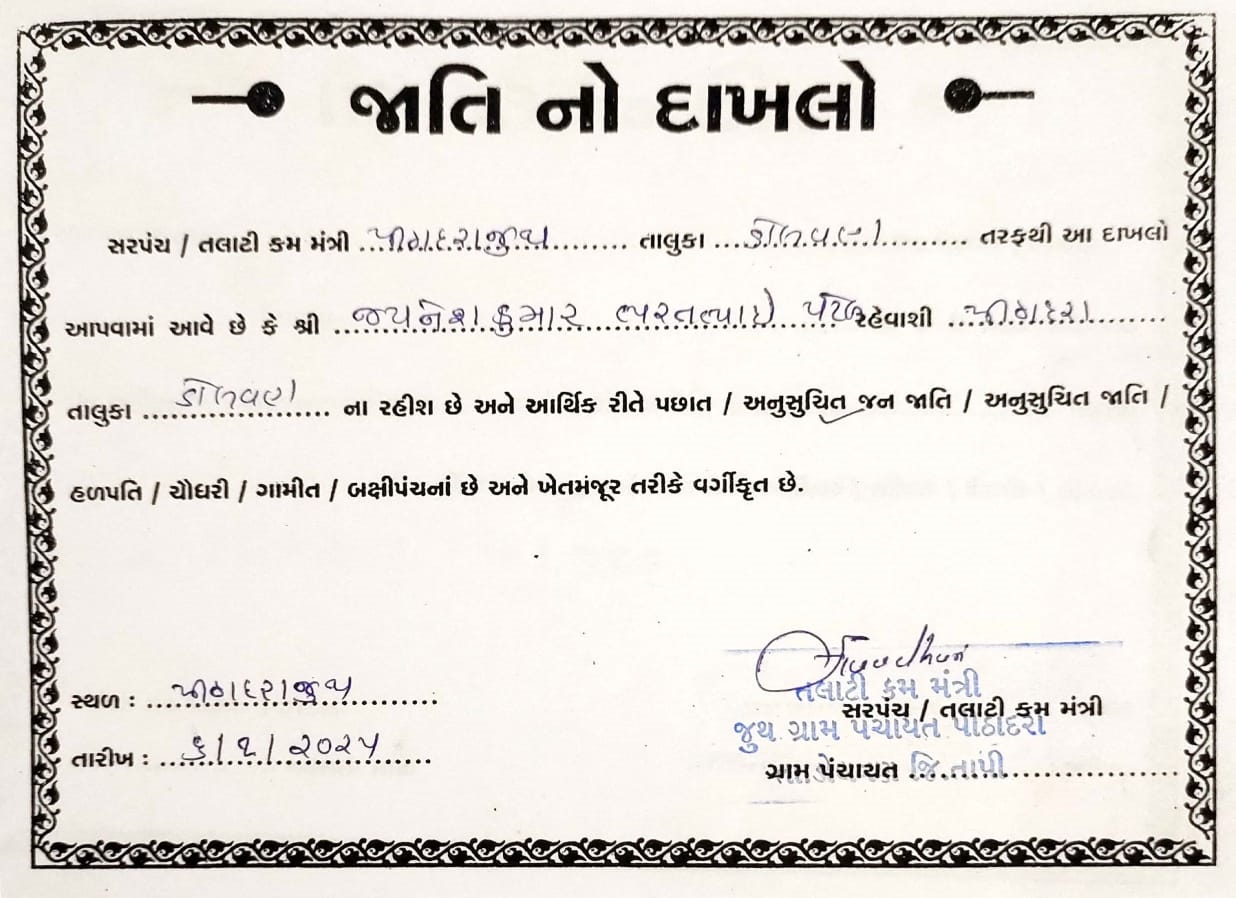 જાતિ નો દાખલો
સરપંચ / તલાટી કમ મંત્રી પીઠાદરાજુથ તાલુકા ડોલવણ તરફથી આ દાખલો
આપવામાં આવે છે કે શ્રી જયનેશકુમાર ભરતભાઈ પટેલ રહેવાશી પીઠાદરા
તાલુકા ડોલવણ ના રહીશ છે અને આર્થિક રીતે પછાત / અનુસુચિત જન જાતિ / અનુસુચિત જાતિ /
હળપતિ / ચૌધરી / ગામીત / બક્ષીપંચનાં છે અને ખેતમંજૂર તરીકે વર્ગીકૃત છે.
સ્થળ : પીઠાદરાજુથ
તલાટી કમ મંત્રી
સરપંચ / તલાટી કમ મંત્રી
જુથ ગ્રામ પંચાયત પીઠાદરા
તારીખ : ૬/૧/૨૦૨૫
ગ્રામ પેંચાયત
જિ.તાપી